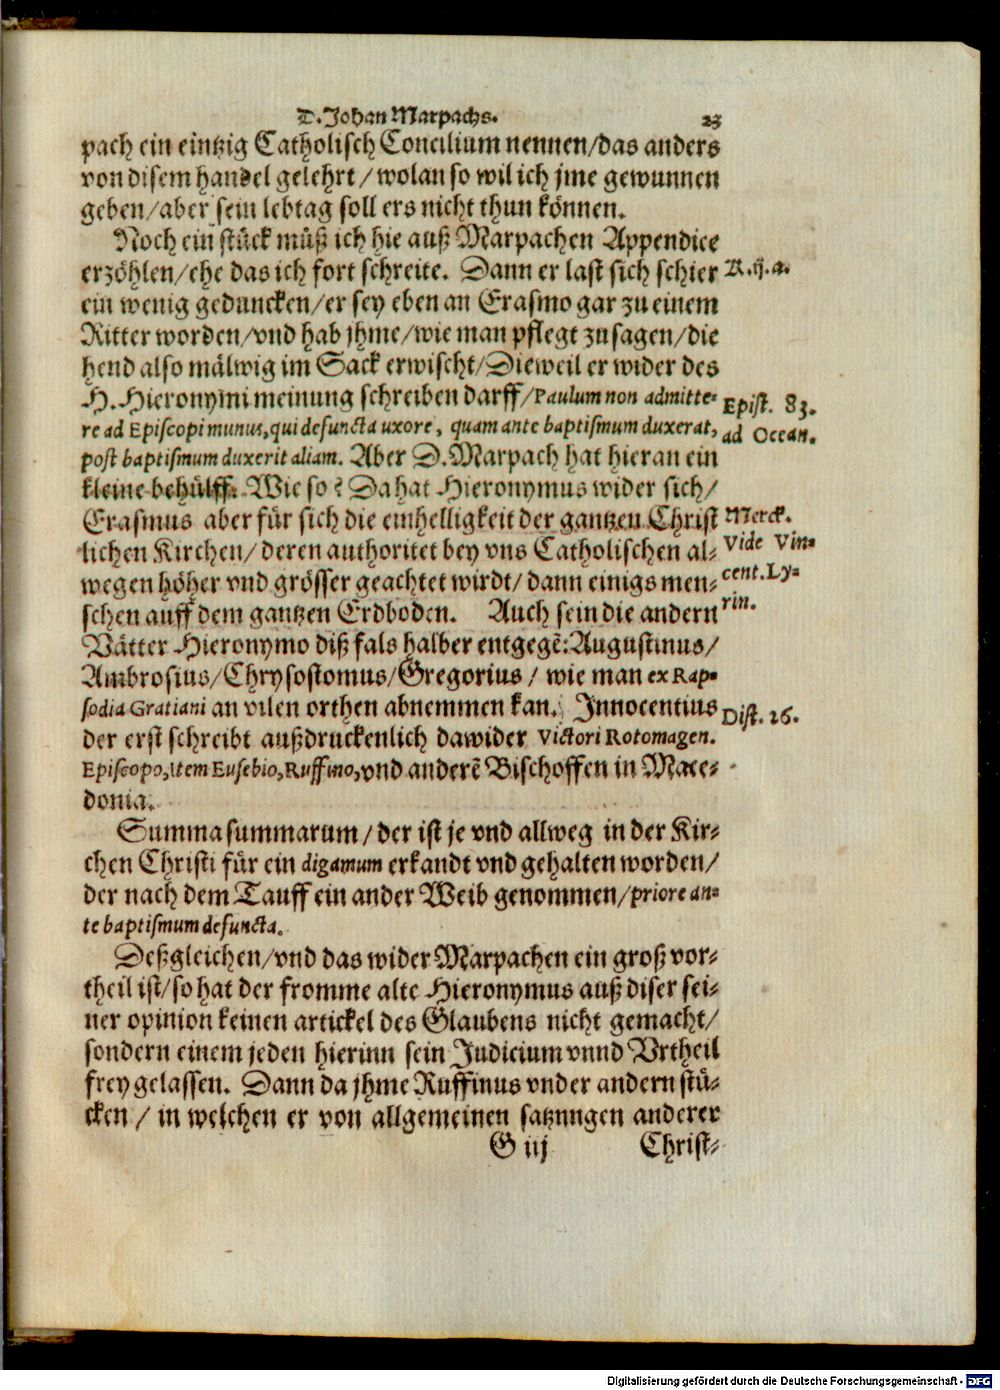 D. Johan Marpachs. 23
pach ein eintzig Catholisch Concilium nennen/das anders
von disem handel gelehrt/wolan so wil ich jme gewunnen
geben/aber sein lebtag soll ers nicht thun können.
Noch ein stück müß ich hie auß Marpachen Appendice
erzöhlen/ehe das ich fort schreite. Dann er last sich schier
R.ij.a.
ein wenig geduncken/er sey eben an Erasmo gar zu einem
Ritter worden/vnd hab jhme/wie man pflegt zu sagen/die
hend also mälwig im Sack erwischt/Dieweil er wider des
H. Hieronymi meinung schreiben darff/Paulum non admitte-
Epist. 83.
re ad Episcopi munus, qui defuncta uxore, quam ante baptismum duxerat,
ad Ocean.
post baptismum duxerit aliam. Aber D. Marpach hat hieran ein
kleine behülff. Wie so? Da hat Hieronymus wider sich/
Erasmus aber für sich die einhelligkeit der gantzen Christ
Merck.
lichen Kirchen/deren authoritet bey vns Catholischen al-
Vide Vin-
wegen höher vnd grösser geachtet wirdt/dann einigs men-
cent. Ly-
schen auff dem gantzen Erdboden. Auch sein die andern
rin.
Vätter Hieronymo diß fals halber entgegē: Augustinus/
Ambrosius/Chrysostomus/Gregorius/ wie man ex Rap-
sodia Gratiani an vilen orthen abnemmen kan. Innocentius
Dist. 26.
der erst schreibt außdruckenlich dawider Victori Rotomagen.
Episcopo, Item Eusebio, Ruffino, vnd anderē Bischoffen in Mace-
donia.
Summa summarum/der ist je vnd allweg in der Kir-
chen Christi für ein digamum erkandt vnd gehalten worden/
der nach dem Tauff ein ander Weib genommen/priore an-
te baptismum defuncta.
Deßgleichen/vnd das wider Marpachen ein groß vor-
theil ist/so hat der fromme alte Hieronymus auß diser sei-
ner opinion keinen artickel des Glaubens nicht gemacht/
sondern einem jeden hierinn sein Judicium vnnd Vrtheil
frey gelassen. Dann da jhme Ruffinus vnder andern stü-
cken/in welchen er von allgemeinen satzungen anderer
G iij Christ-
Digitalisierung gefördert durch die Deutsche Forschungsgemeinschaft - DFG